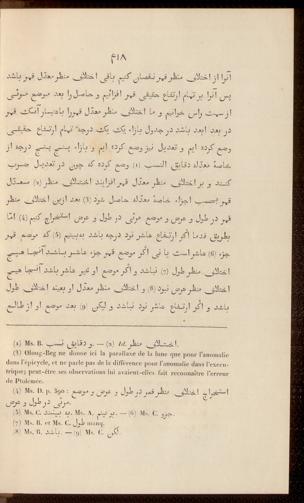 ۴۱۸
آنرا از اختلاف منظر قمر نقصان کنیم باقی اختلاف منظر معدّل قمر باشد
پس آنرا بر تمام ارتفاع حقیقی قمر افزائیم و حاصل را بعد موضع مرئی
از سمت راس خوانیم و ما اختلاف منظر معدّل قمر را باعتبار آنکه قمر
در بعد ابعد باشد در جدول بازاء یک یک درجهٔ تمام ارتفاع حقیقی
وضع کرده ایم و تعدیل نیز وضع کرده ایم و بازاء پنج پنج درجه از
خاصهٔ معدله دقایق النسب (1) وضع کرده که چون در تعدیل ضرب
کنند و بر اختلاف منظر معدّل قمر افزایند اختلاف منظر (2) معدّل
قمر بحسب اجزاء خاصهٔ معدله حاصل شود (3) بعد ازین اختلاف منظر
قمر در طول و عرض و موضع مرئی در طول و عرض استخراج کنیم (4) امّا
بطریق قدما اگر ارتفاع عاشر نود درجه باشد به‌بینیم (5) که موضع قمر
جزء (6) عاشر است یا نی اگر موضع قمر جزء عاشر باشد آنجا هیچ
اختلاف منظر طول (7) نباشد و اگر موضع او غیر عاشر باشد آنجا هیچ
اختلاف منظر عرض نبود (8) و اختلاف منظر معدّل او بعینه اختلاف طول
باشد و اگر ارتفاع عاشر نود نباشد و لیکن (9) بعد موضع او از طالع
(1) Ms. B. و دقایق نسب. — (2) Id. اختلاف منظر.
(3) Oloug-Beg ne donne ici la parallaxe de la lune que pour l'anomalie
dans l'épicycle, et ne parle pas de la différence pour l'anomalie dans l'excen-
trique; peut-être ses observations lui avaient-elles fait reconnaître l'erreur
de Ptolémée.
(4) Ms. D. p. 590 : استخراج اختلاف منظر قمر در طول و عرض و موضع
مرئی در طول و عرض.
(5) Ms. C. به بینند. Ms. A. — (6) Ms. C. جزو.
(7) Ms. B. et Ms. C. طول manq.
(8) Ms. B. باشد. — (9) Ms. C. لکن.